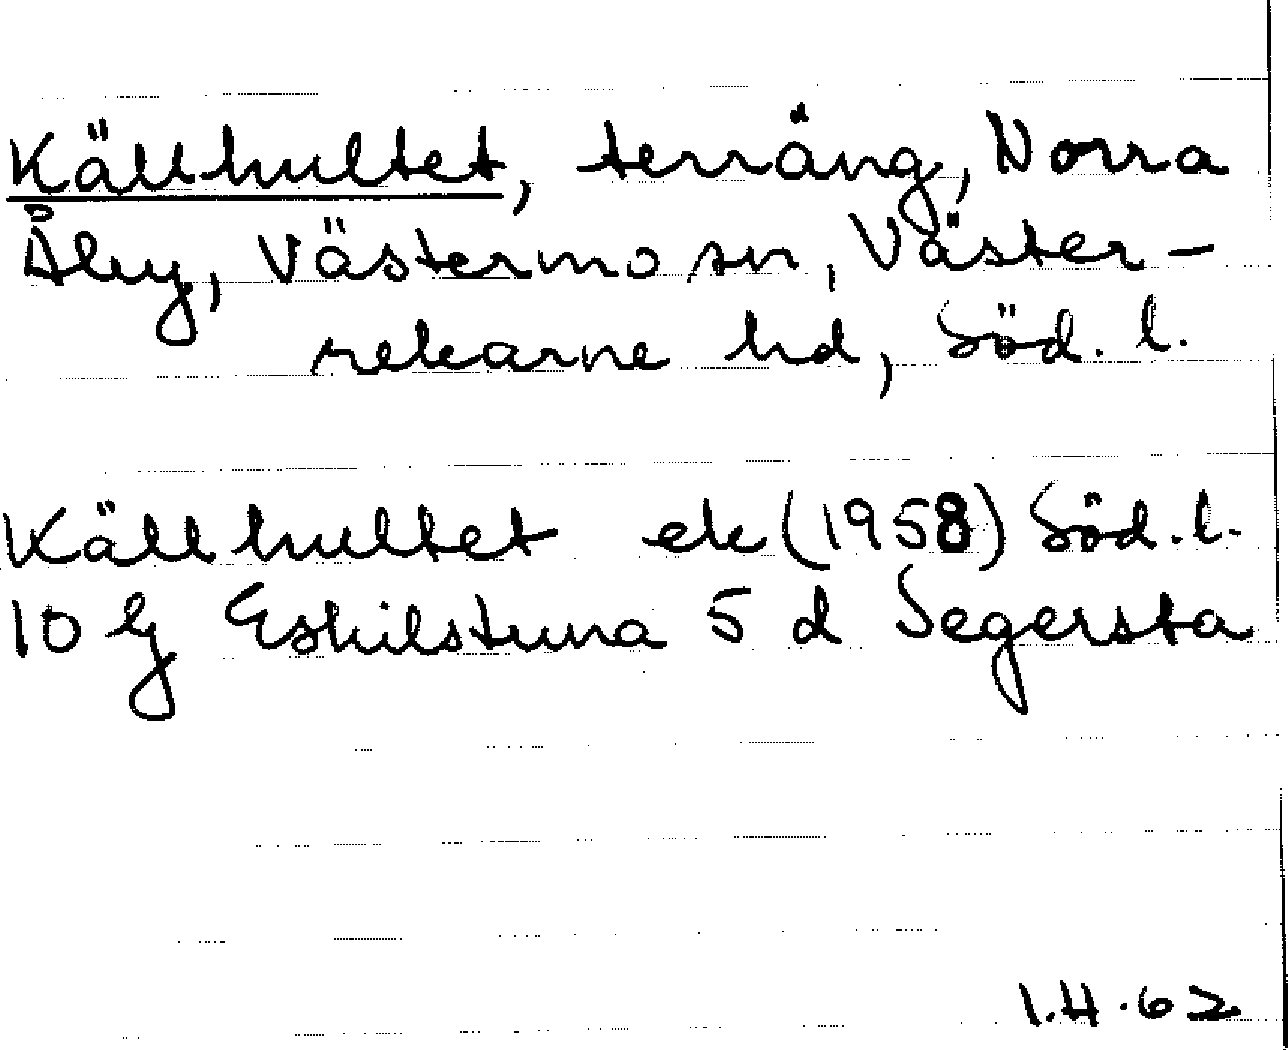 Källhultet, terräng, Norra
Åby, Västermo sn, Väster-
rekarne hd, Söd. l.
Källhultet ek (1958) Söd. l.
10 G Eskilstuna 5 d Segersta
1.4.62